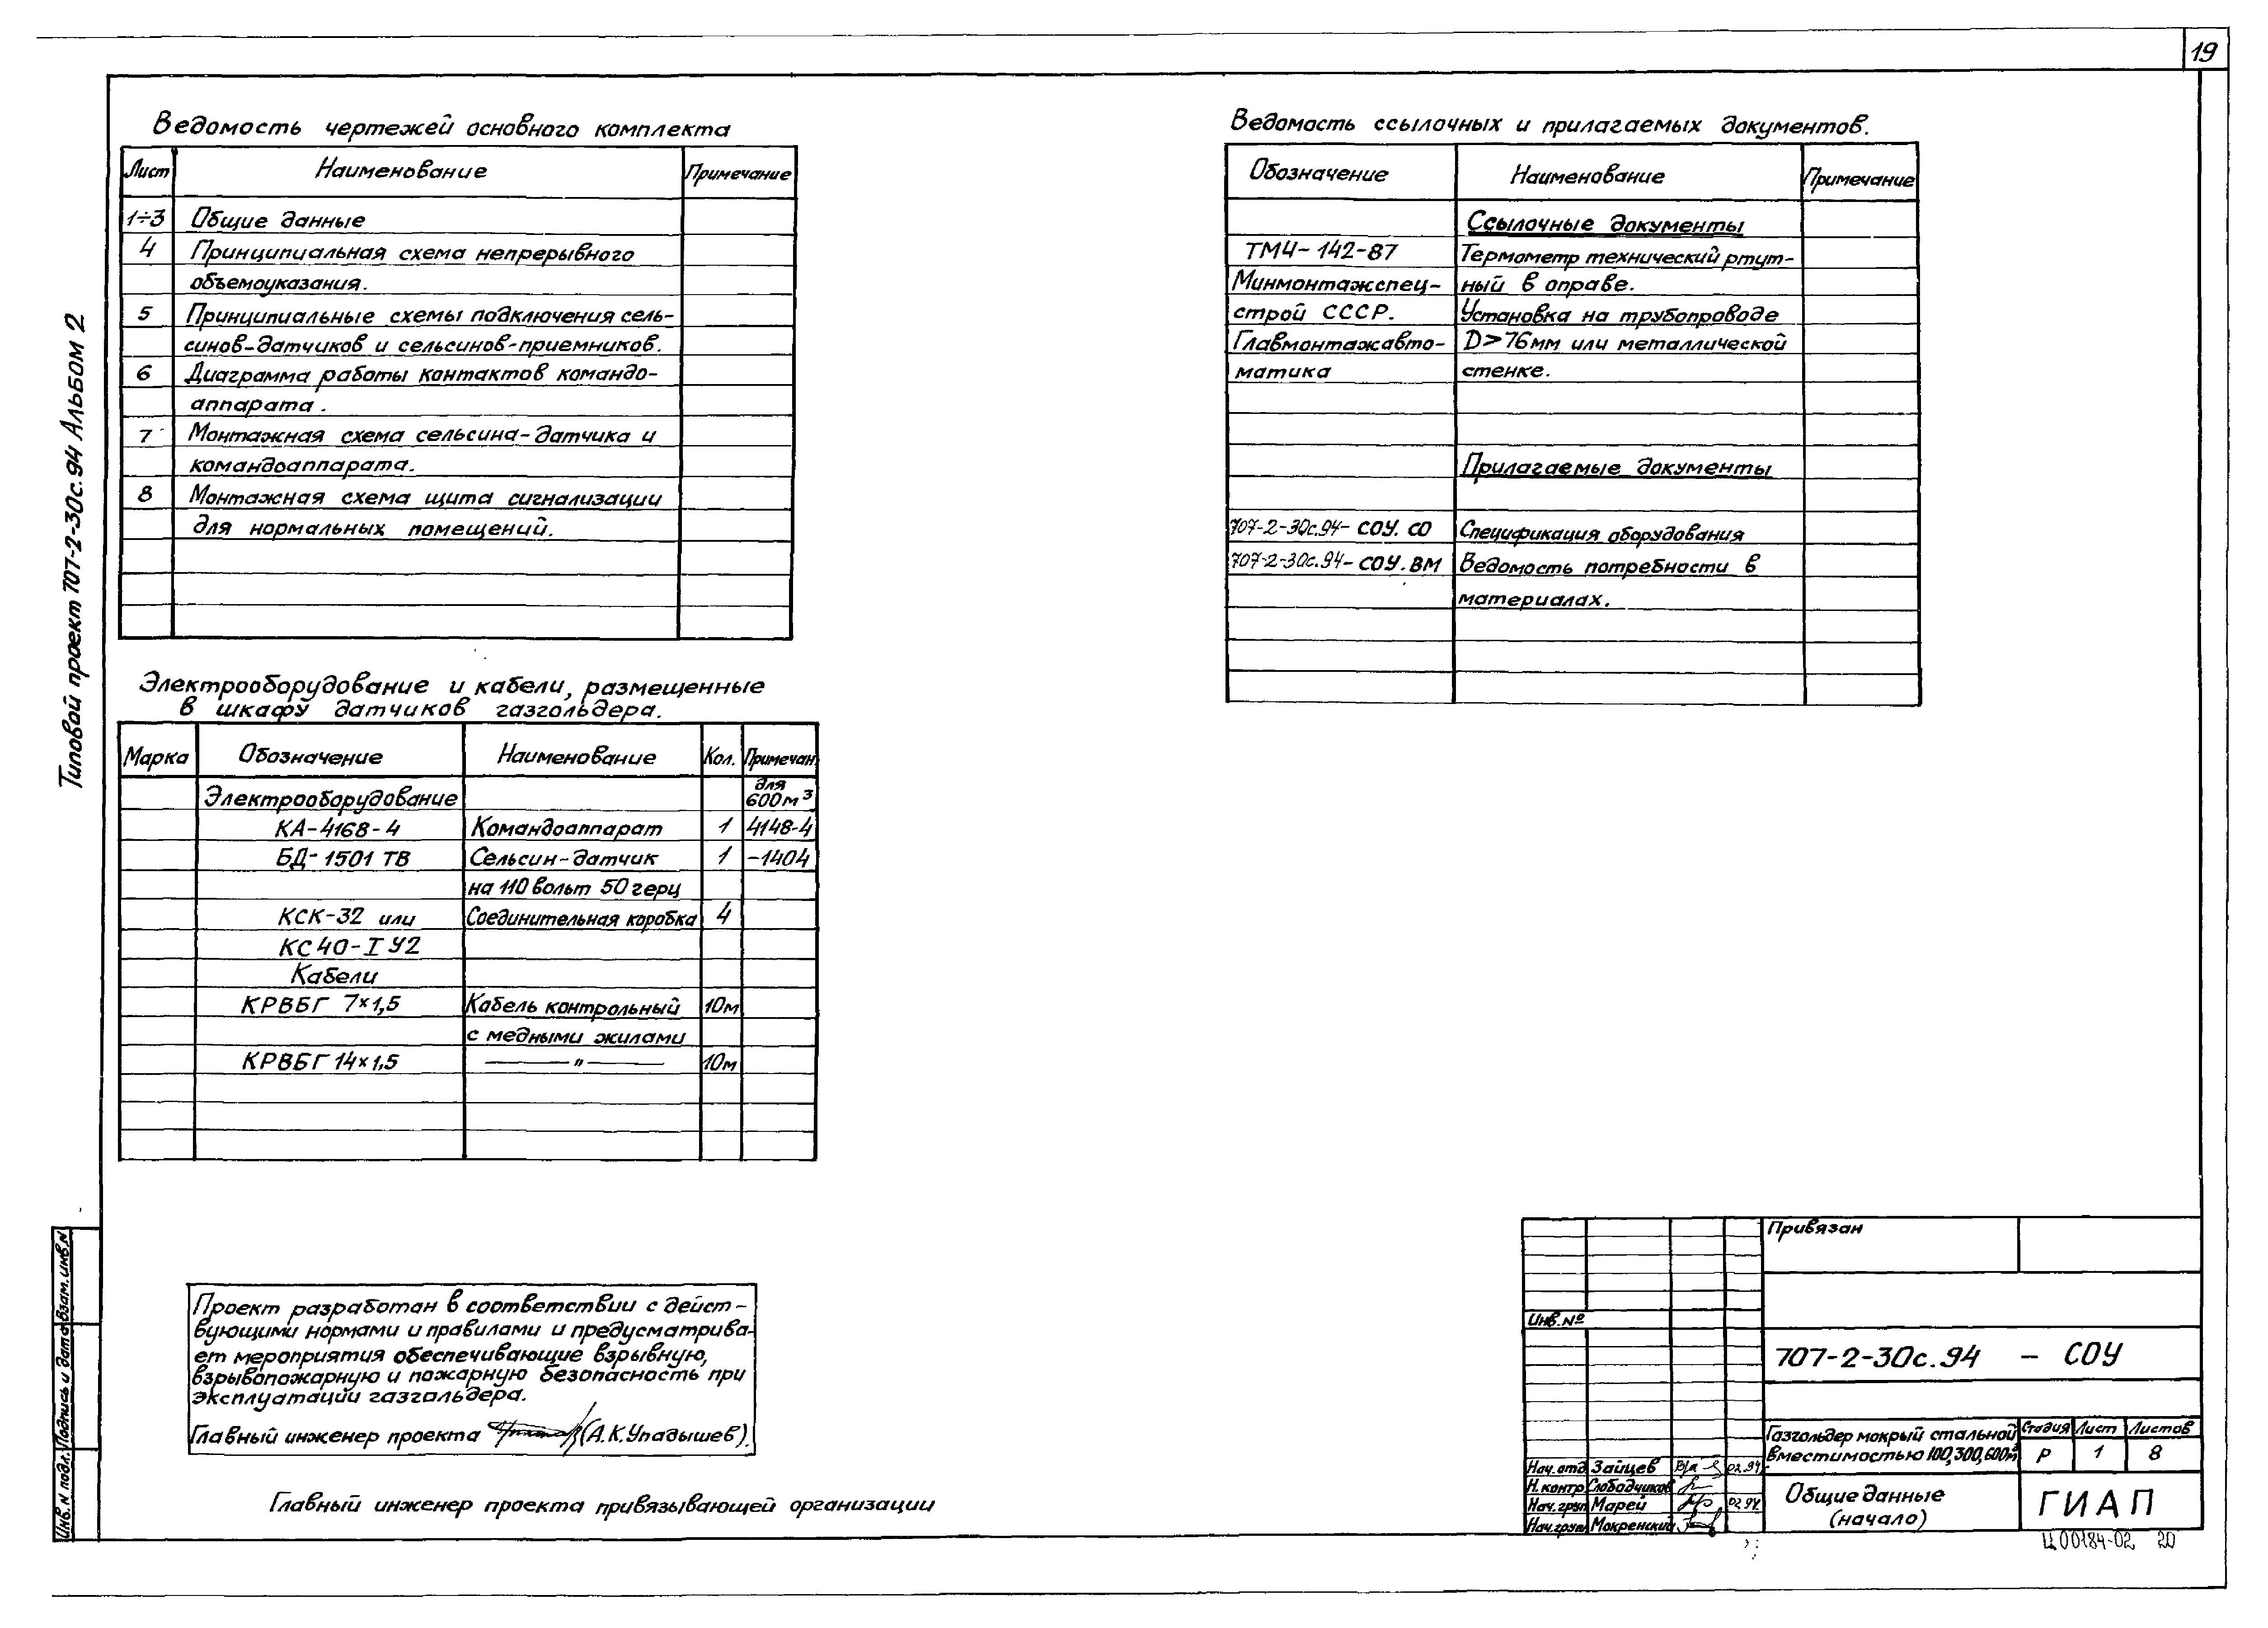 19
Типовой проект 707-2-30с.94 Альбом 2
Ведомость чертежей основного комплекта
Лист Наименование Примечание
1÷3 Общие данные
4 Принципиальная схема непрерывного
объемоуказания.
5 Принципиальные схемы подключения сель-
синов-датчиков и сельсинов-приемников.
6 Диаграмма работы контактов командо-
аппарата.
7 Монтажная схема сельсина-датчика и
командоаппарата.
8 Монтажная схема щита сигнализации
для нормальных помещений.
Ведомость ссылочных и прилагаемых документов.
Обозначение Наименование Примечание
Ссылочные документы
ТМ4-142-87 Термометр технический ртут-
Минмонтажспец- ный в оправе.
строй СССР. Установка на трубопроводе
Главмонтажавто- D>76мм или металлической
матика стенке.
Прилагаемые документы
707-2-30с.94- СОУ. СО Спецификация оборудования
707-2-30с.94- СОУ. ВМ Ведомость потребности в
материалах.
Электрооборудование и кабели, размещенные
в шкафу датчиков газгольдера.
Марка Обозначение Наименование Кол. Примечан.
Электрооборудование для
600м³
КА-4168-4 Командоаппарат 1 4148-4
БД-1501 ТВ Сельсин-датчик 1 -1404
на 110 вольт 50 герц
КСК-32 или Соединительная коробка 4
КС40-I У2
Кабели
КРВБГ 7×1,5 Кабель контрольный 10м
с медными жилами
КРВБГ 14×1,5 —"— 10м
Проект разработан в соответствии с дейст-
вующими нормами и правилами и предусматрива-
ет мероприятия обеспечивающие взрывную,
взрывопожарную и пожарную безопасность при
эксплуатации газгольдера.
Главный инженер проекта (А.К.Упадышев).
Главный инженер проекта привязывающей организации
Инв.N подл. Подпись и дата Взам.инв.N
Привязан
Инв.№
707-2-30с.94 - СОУ
Газгольдер мокрый стальной
вместимостью 100,300,600м³
Стадия Лист Листов
Р 1 8
Нач.отд Зайцев 02.94
Н.контр Слободчиков
Нач.груп Марей 02.94
Нач.груп Мокренский
Общие данные
(начало)
ГИАП
Ц00184-02 20